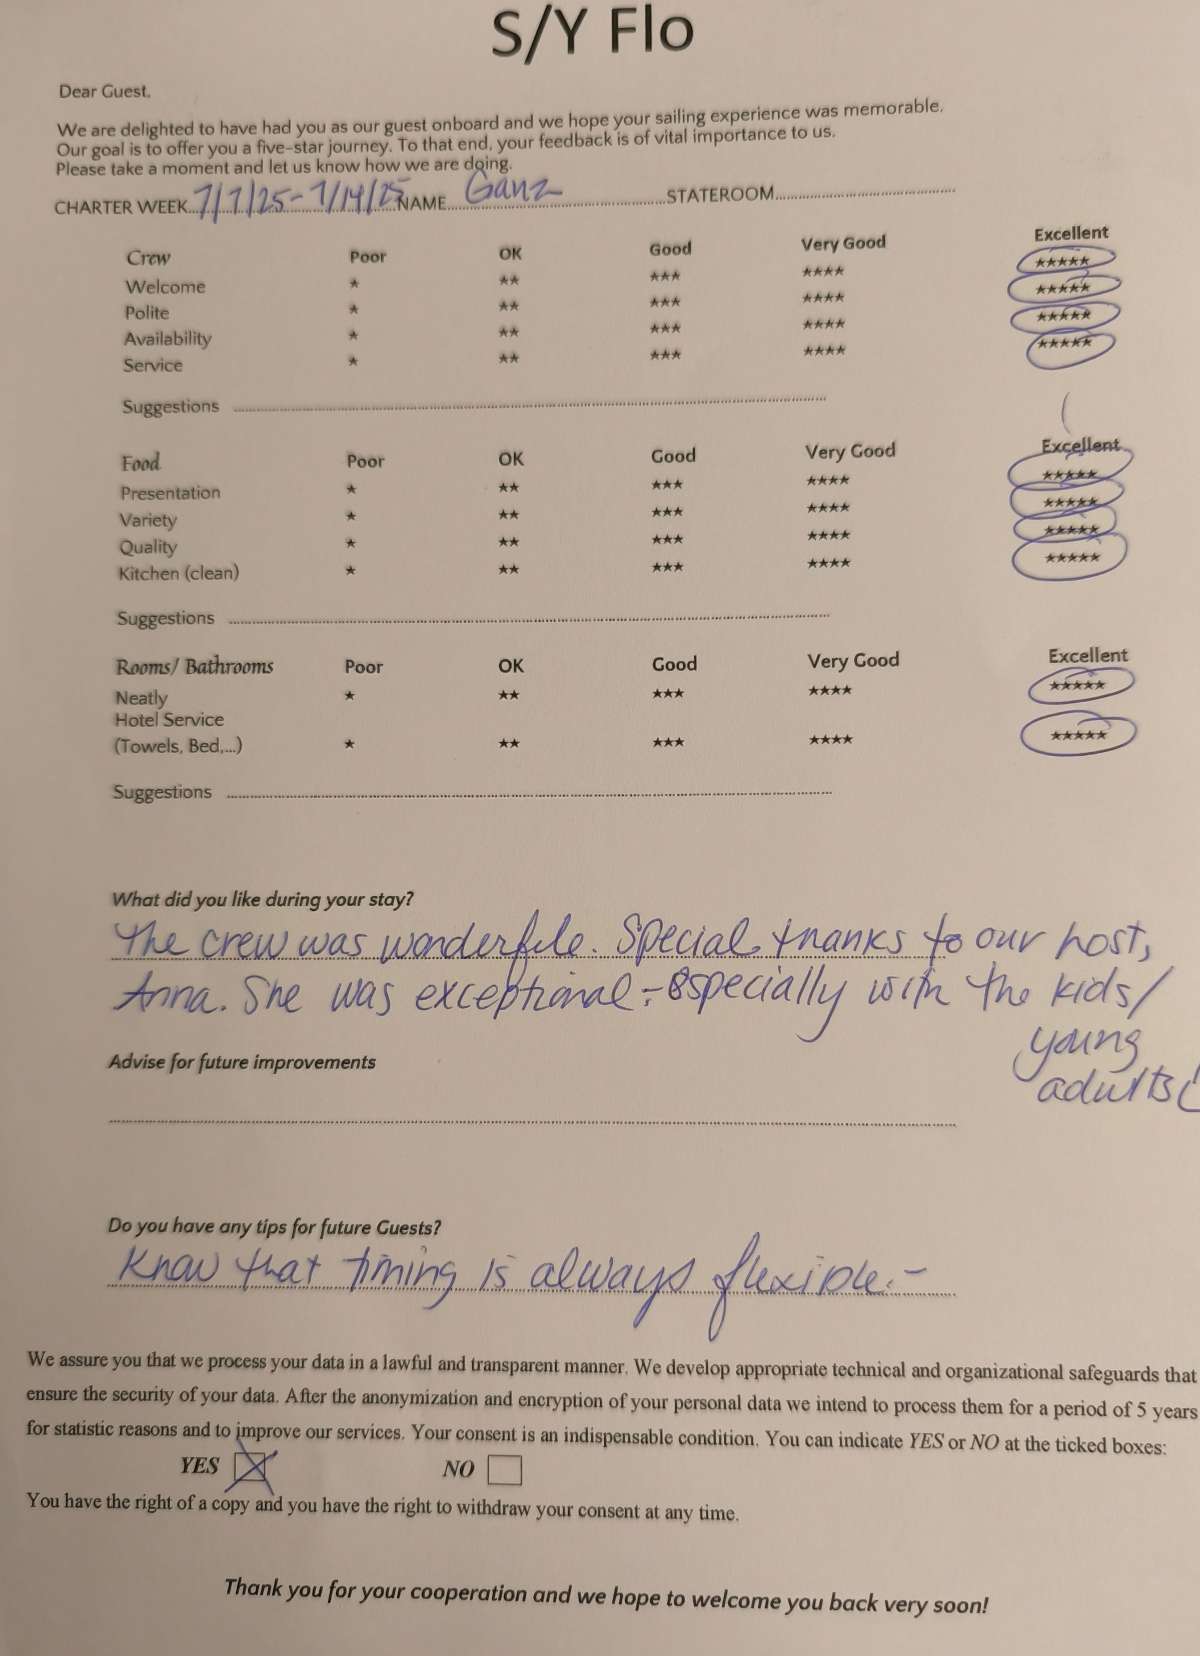 S/Y Flo
Dear Guest,
We are delighted to have had you as our guest onboard and we hope your sailing experience was memorable.
Our goal is to offer you a five-star journey. To that end, your feedback is of vital importance to us.
Please take a moment and let us know how we are doing.
CHARTER WEEK 7/7/25-7/14/25 NAME Ganz STATEROOM
Crew Poor OK Good Very Good Excellent
Welcome ★ ★★ ★★★ ★★★★ ★★★★★
Polite ★ ★★ ★★★ ★★★★ ★★★★★
Availability ★ ★★ ★★★ ★★★★ ★★★★★
Service ★ ★★ ★★★ ★★★★ ★★★★★
Suggestions
Food Poor OK Good Very Good Excellent
Presentation ★ ★★ ★★★ ★★★★ ★★★★★
Variety ★ ★★ ★★★ ★★★★ ★★★★★
Quality ★ ★★ ★★★ ★★★★ ★★★★★
Kitchen (clean) ★ ★★ ★★★ ★★★★ ★★★★★
Suggestions
Rooms/ Bathrooms Poor OK Good Very Good Excellent
Neatly ★ ★★ ★★★ ★★★★ ★★★★★
Hotel Service
(Towels, Bed,...) ★ ★★ ★★★ ★★★★ ★★★★★
Suggestions
What did you like during your stay?
The crew was wonderful. Special thanks to our host,
Anna. She was exceptional - especially with the kids/
young
adults!
Advise for future improvements
Do you have any tips for future Guests?
Know that timing is always flexible. -
We assure you that we process your data in a lawful and transparent manner. We develop appropriate technical and organizational safeguards that
ensure the security of your data. After the anonymization and encryption of your personal data we intend to process them for a period of 5 years
for statistic reasons and to improve our services. Your consent is an indispensable condition. You can indicate YES or NO at the ticked boxes:
YES NO
You have the right of a copy and you have the right to withdraw your consent at any time.
Thank you for your cooperation and we hope to welcome you back very soon!